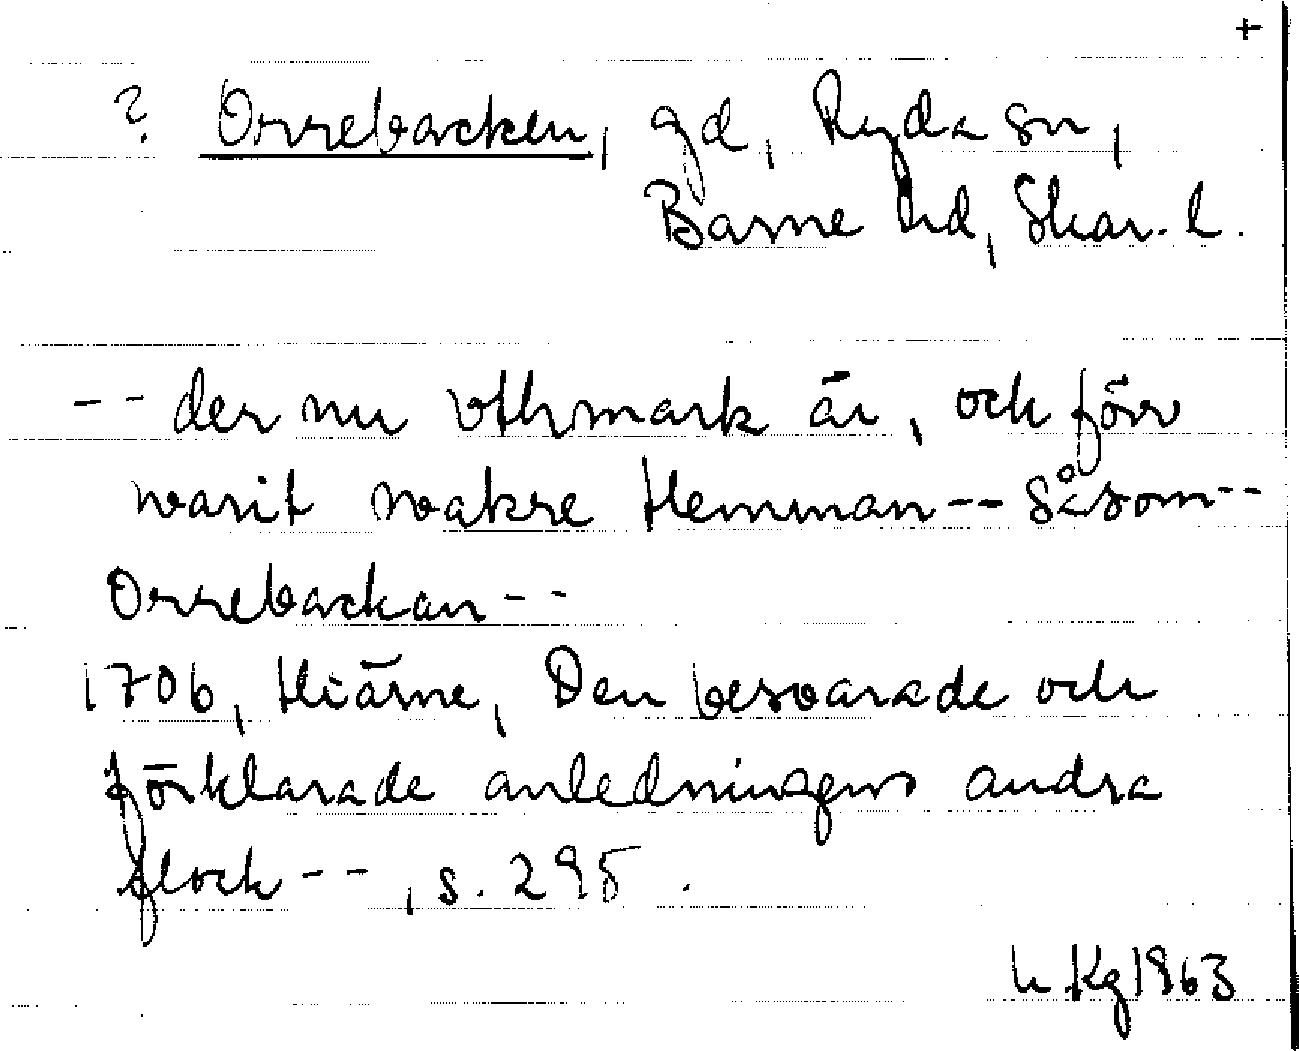 +
? Orrebacken, gd, Ryda sn,
Barne hd, Skar. l.
-- der nu vthmark är, och förr
warit wakre Hemman -- såsom --
Orrebackan --
1706, Hiärne, Den besvarade och
förklarade anledningens andra
flock --, s. 295.
h Kg 1963